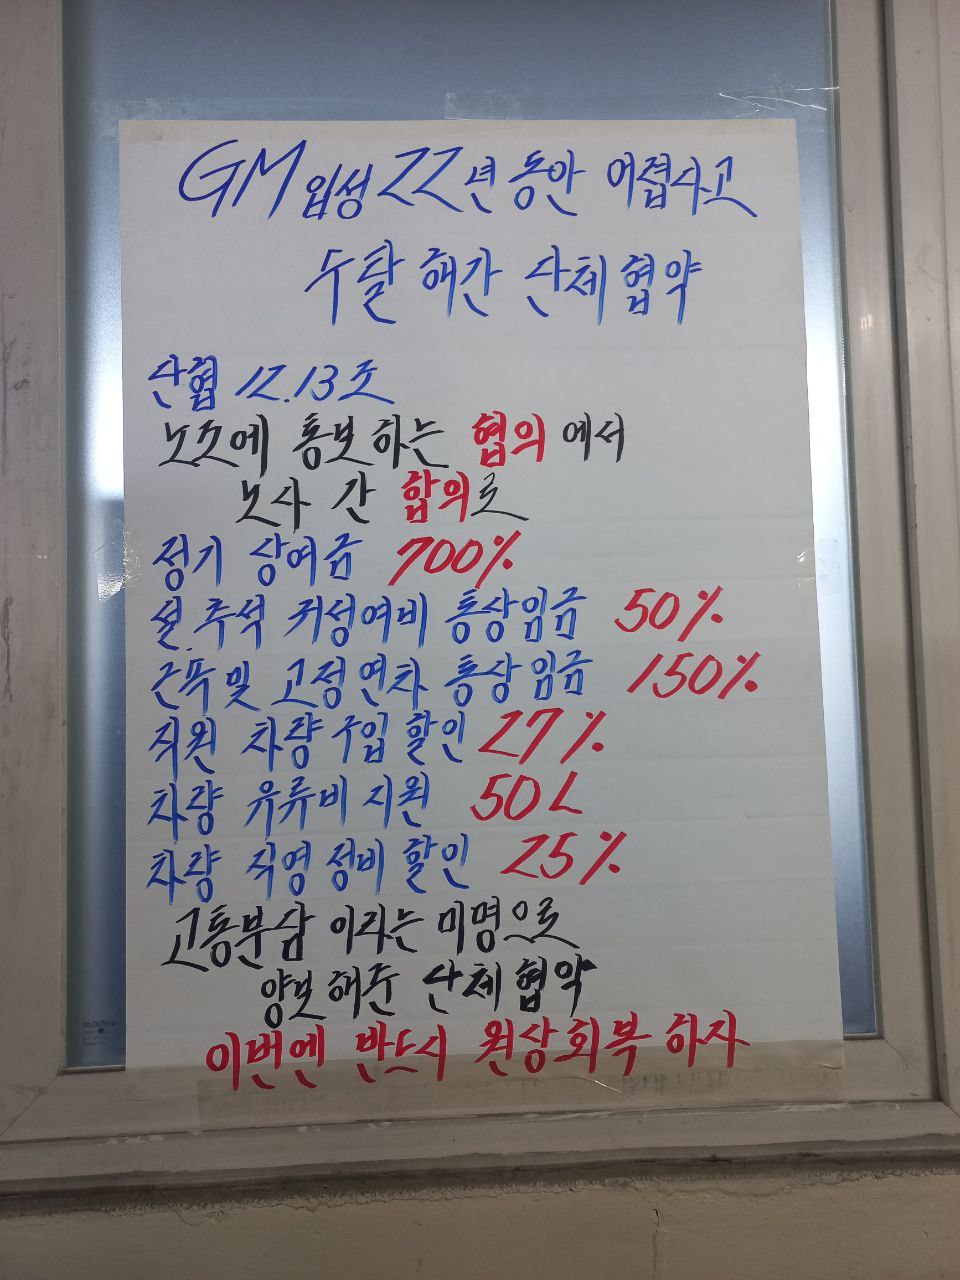 GM 입성 22년 동안 어렵다고
수탈 해간 단체협약
단협 12.13조
노조에 통보하는 협의에서
노사 간 합의로
정기 상여금 700%
설.추석 귀성여비 통상임금 50%
근무 및 고정연차 통상임금 150%
직원 차량구입 할인 27%
차량 유류비 지원 50L
차량 직영정비 할인 25%
고통분담 이라는 미명으로
양보해준 단체협약
이번엔 반드시 원상회복 하자